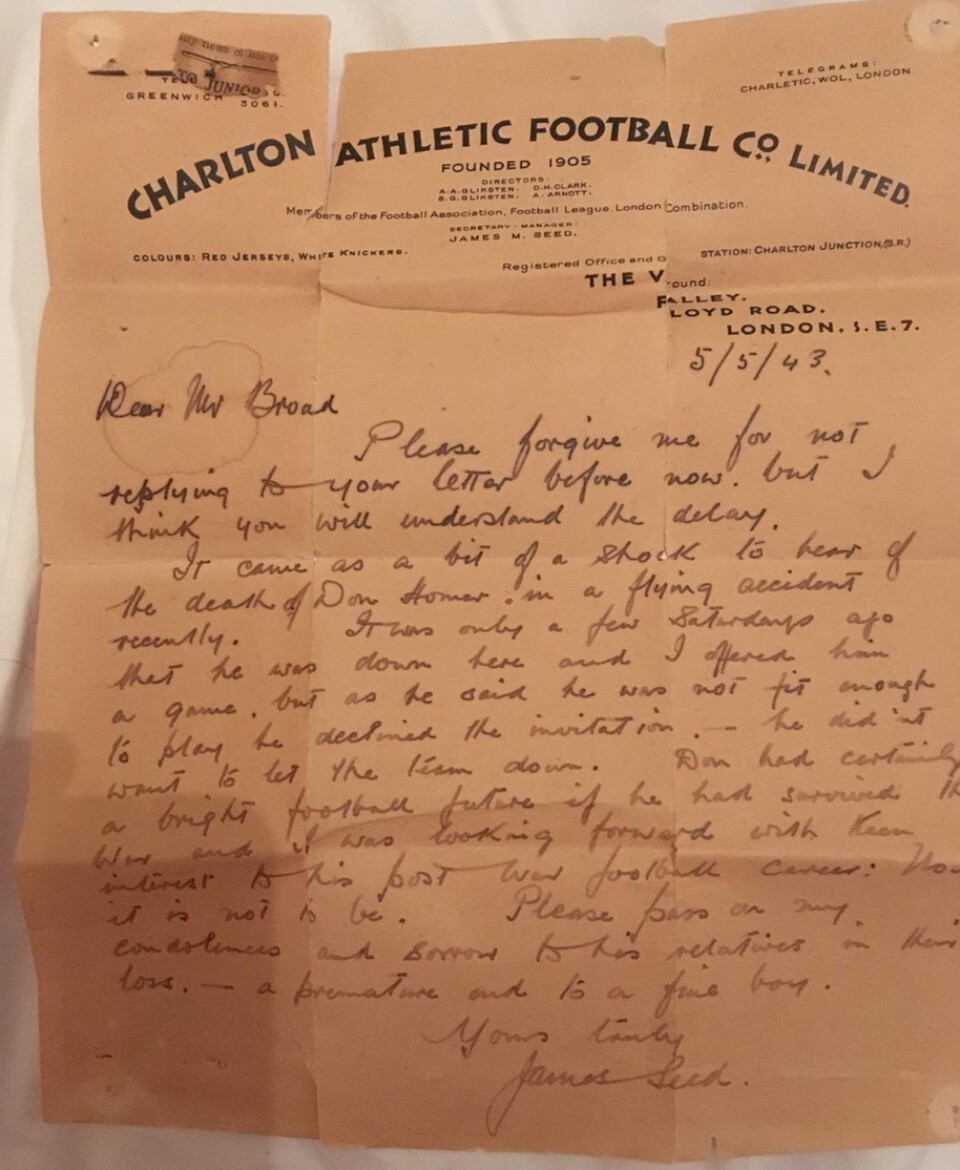 any news of his
JUNIOR
GREENWICH 3061.
TELEGRAMS:
CHARLETIC, WOL., LONDON
CHARLTON ATHLETIC FOOTBALL Co., LIMITED.
FOUNDED 1905
DIRECTORS:
A.A.GLIKSTEN. D.H.CLARK.
S.G.GLIKSTEN. A. ARNOTT.
Members of the Football Association, Football League, London Combination.
SECRETARY-MANAGER:
JAMES M. SEED.
COLOURS: RED JERSEYS, WHITE KNICKERS.
STATION: CHARLTON JUNCTION,(S.R.)
Registered Office and Ground:
THE VALLEY,
FLOYD ROAD,
LONDON, S.E.7.
5/5/43.
Dear Mr Broad
Please forgive me for not
replying to your letter before now. but I
think you will understand the delay.
It came as a bit of a shock to hear of
the death of Don Homer. in a flying accident
recently. It was only a few Saturdays ago
that he was down here and I offered him
a game. but as he said he was not fit enough
to play he declined the invitation. — he did'nt
want to let the team down. Don had certainly
a bright football future if he had survived th
War and I was looking forward with keen
interest to his post war football career: Now
it is not to be. Please pass on my
condolences and sorrow to his relatives in their
loss. — a premature end to a fine boy.
Yours truly
James Seed.